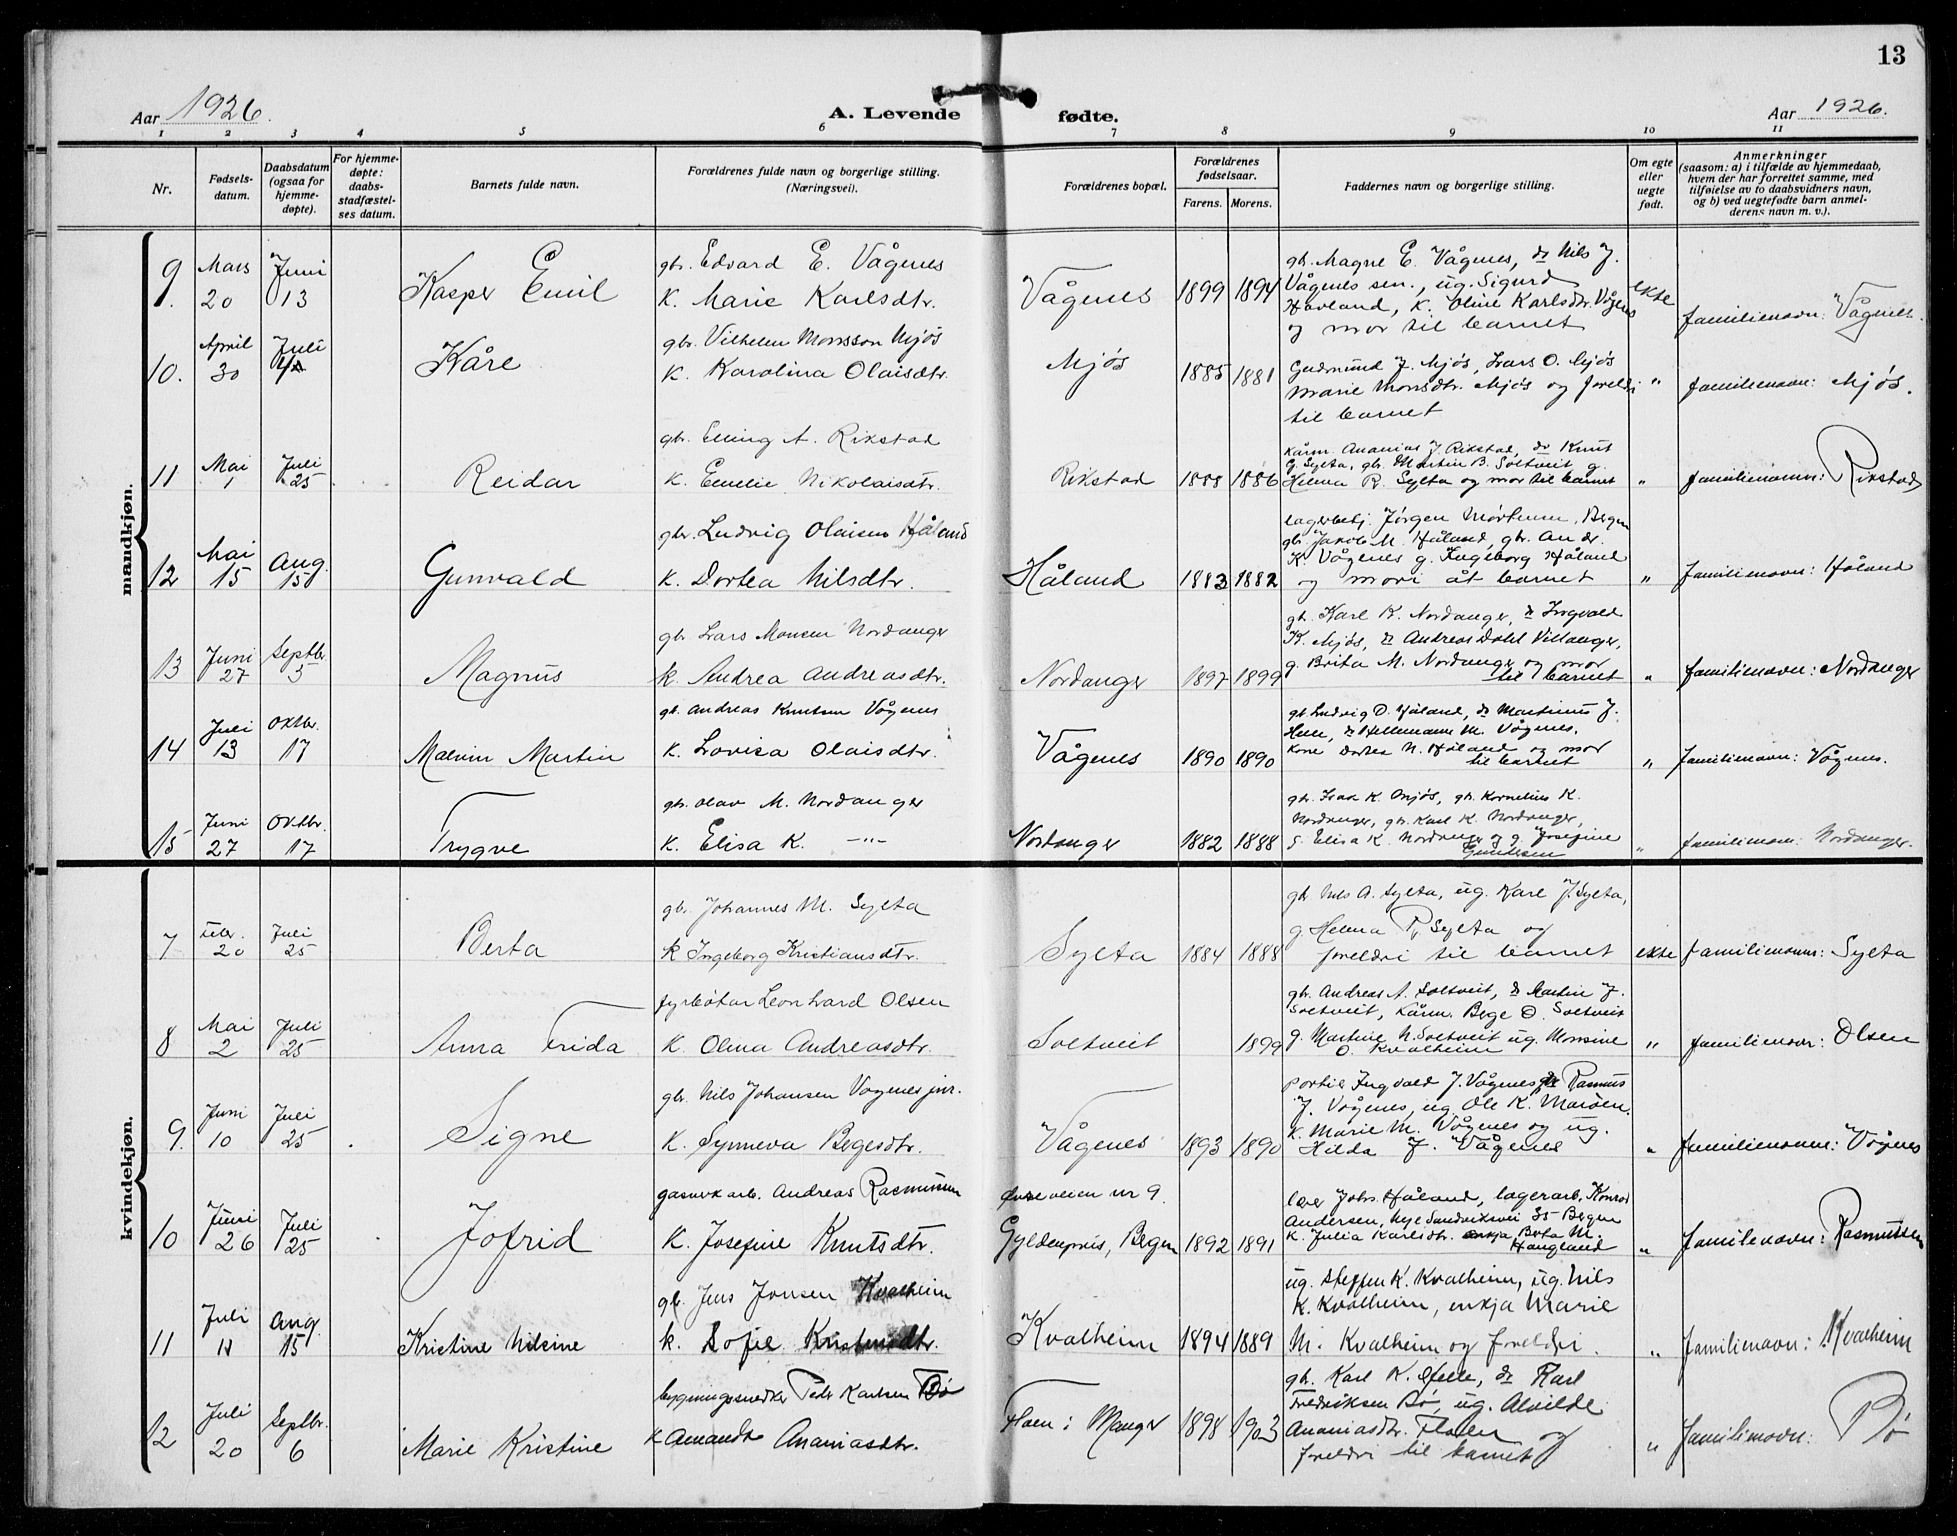 13
Aar 1926.
A. Levende
fødte.
Aar 1926.
1 2 3 4 5 6 7 8 9 10 11
Nr.
Fødsels-
datum.
Daabsdatum
(ogsaa for
hjemme-
døpte).
For hjemme-
døpte:
daabs-
stadfæstel-
ses datum.
Barnets fulde navn.
Forældrenes fulde navn og borgerlige stilling.
(Næringsvei).
Forældrenes bopæl.
Forældrenes
fødselsaar.
Farens. Morens.
Faddernes navn og borgerlige stilling.
Om egte
eller
uegte
født.
Anmerkninger
(saasom: a) i tilfælde av hjemmedaab,
hvem der har forrettet samme, med
tilføielse av to daabsvidners navn,
og b) ved uegtefødte barn anmel-
derens navn m. v.).
mandkjøn.
9. Mars 20 Juni 13 Kasper Emil
gbr. Edvard E. Vågenes
K. Marie Karlsdtr.
Vågenes 1899 1894
gb. Magne E. Vågenes, dr Nils J.
Vågenes sen., ug. Sigurd
Havland, K. Oline Karlsdtr. Vågenes
og mor til barnet
ekte familienavn: Vågenes.
10. April 30 Juli Kåre
gbr. Vilhelm Monsson Mjøs
K. Karolina Olaisdtr.
Mjøs 1885 1881
Gudmund J. Mjøs, Lars O. Mjøs
Marie Monsdtr. Mjøs og foreldri
til barnet
" familienavn: Mjøs.
11 Mai 1 Juli 25 Reidar
gbr. Elling A. Rikstad
K. Emelie Nikolaisdtr.
Rikstad 1888 1886
kårm. Ananias J. Rikstad, dr Knut
G. Sylta, gb. Martin B. Soltveit g.
Helena R. Sylta og mor til barnet
" familienamn: Rikstad
12 Mai 15 Aug. 15 Gunvald
gbr. Ludvig Olaisen Håland
K. Dortea Nilsdtr.
Håland 1883 1882
lagerbetj. Jørgen Mortensen, Bergen
gb. Jakob M. Håland, gbr. Andr.
K. Vågenes g. Ingeborg Håland
og mori åt barnet
" familienavn: Håland
13 Juni 27 Septbr 5 Magnus
gbr Lars Monsen Nordanger
k. Andrea Andreasdtr.
Nordanger 1897 1899
gb. Karl K. Nordanger, dr Ingvald
K. Mjøs, dr Andreas Dahl Villanger,
g. Brita M. Nordanger og mor
til barnet
" familienavn: Nordanger
14 Juli 13 Oktbr. 17 Malvin Martin
gb. Andreas Knutsen Vågenes
K. Lovisa Olaisdtr.
Vågenes 1890 1890
gb Ludvig O. Håland, dr Martinus J.
Helle, dr Hellemann M. Vågenes.
Kone Dortea N. Håland og mor
til barnet
" familienavn: Vågenes.
15 Juni 27 Oktbr. 17 Trygve
gbr. Olav M. Nordanger
K. Elisa K. —"—
Nordanger 1882 1888
gbr. Isak K. Mjøs, gb. Kornelius K.
Nordanger, gb. Karl K. Nordanger,
g. Elisa K. Nordanger og g. Josefine
Gundersen
" familienavn: Nordanger.
kvindekjøn.
7 Febr. 20 Juli 25 Berta
gbr. Johannes M. Sylta
k Ingeborg Kristiansdtr.
Sylta 1884 1888
gb Nils A. Sylta, ug. Karl J. Sylta,
g. Helena R. Sylta og
foreldri til barnet
ekte familienamn: Sylta
8 Mai 2 Juli 25 Anna Frida
fyrbøtar Leonhard Olsen
K. Olina Andreasdtr.
Soltveit 1899
gb. Andreas A. Soltveit, dr Martin J.
Soltveit, kårm. Berge O. Soltveit
g. Martine N. Soltveit ug. Monsine
O. Kvalheim
" familienavn: Olsen
9. Juni 10 Juli 25 Signe
gbr. Nils Johansen Vågenes jnr.
K. Synneva Bergesdtr.
Vågenes 1893 1890
Ingvald J. Vågenes dr Rasmus
J. Vågenes, ug. Ole K. Marøen.
k. Marie M. Vågenes og ug.
Hilda J. Vågenes
" familienamn: Vågenes
10 Juni 26 Juli 25 Jofrid
gasverkarb. Andreas Rasmussen
K. Josefine Knutsdtr.
veien nr 9.
Gyldenpris, Bergen 1892 1891
Johs. Håland, lagerarb. Konrad
Andersen, Nye Sandviksvei 35 Bergen
K. Julia Karlsdtr. enkja Berta M.
Haugland
" familienavn: Rasmussen
11 Juli 11 Aug. 15 Kristine Nilsine
gb. Jens Jonsen Kvalheim
k. Sofie Kristensdtr.
Kvalheim 1894 1889
ug. Steffen K. Kvalheim, ug. Nils
K. Kvalheim, enkja Marie
M. Kvalheim og foreldri.
" familienavn: Kvalheim
12 Juli 20 Septbr. 6 Marie Kristine
bygningssnedker Peder Karlsen Bø
K Amanda Ananiasdtr.
Floen i Manger 1898 1903
gb. Karl K. Helle, dr Karl
Fredriksen Bø, ug. Alvilde
Ananiasdtr. Floen og
foreldri til barnet
" familienavn: Bø